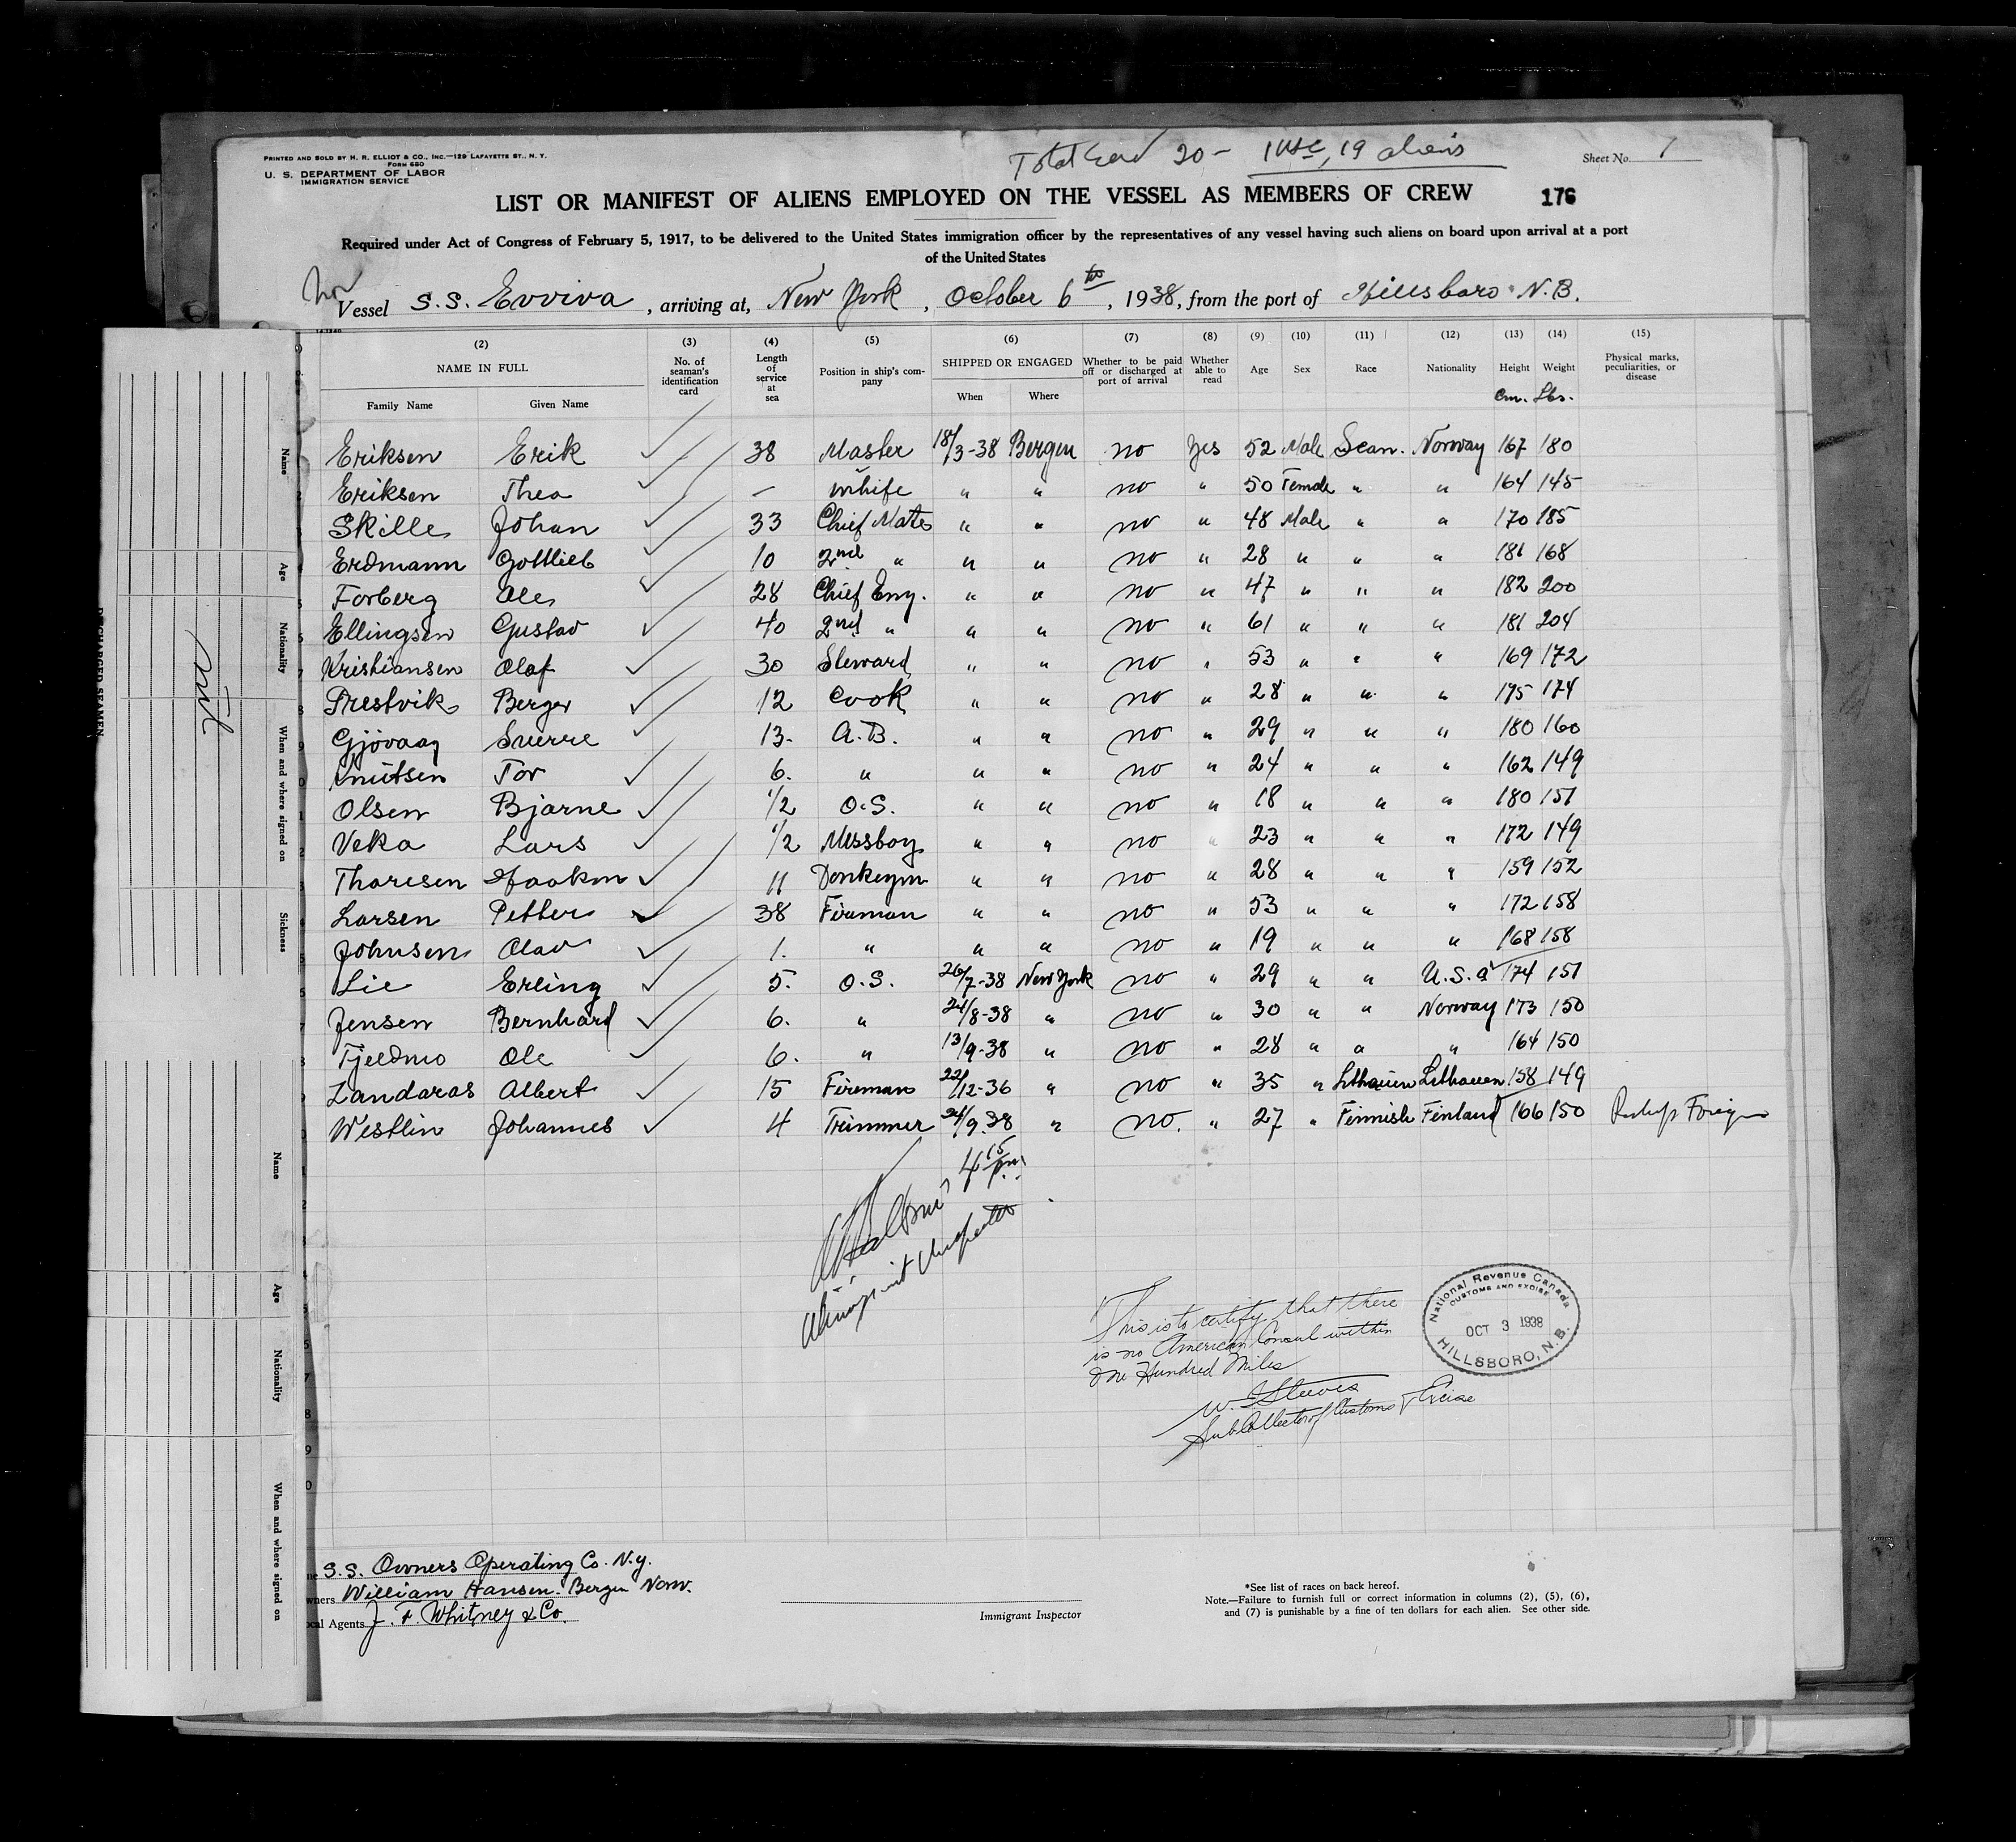 PRINTED AND SOLD BY H. R. ELLIOT & CO., INC.—129 LAFAYETTE ST., N. Y.
FORM 680
U. S. DEPARTMENT OF LABOR
IMMIGRATION SERVICE
Total 20 - 1 USC, 19 aliens
Sheet No. 1
LIST OR MANIFEST OF ALIENS EMPLOYED ON THE VESSEL AS MEMBERS OF CREW
176
Required under Act of Congress of February 5, 1917, to be delivered to the United States immigration officer by the representatives of any vessel having such aliens on board upon arrival at a port
of the United States
Nor
Vessel S.S. Evviva, arriving at, New York, October 6th, 1938, from the port of Hillsboro N.B.
(2) (3) (4) (5) (6) (7) (8) (9) (10) (11) (12) (13) (14) (15)
NAME IN FULL
Family Name
Given Name
No. of seaman's identification card
Length of service at sea
Position in ship's company
SHIPPED OR ENGAGED
When
Where
Whether to be paid off or discharged at port of arrival
Whether able to read
Age
Sex
Race
Nationality
Height
Cm.
Weight
Lbs.
Physical marks, peculiarities, or disease
Eriksen Erik 38 Master 18/3-38 Bergen no Yes 52 Male Scan. Norway 167 180
Eriksen Thea — Whife " " no " 50 Female " " 164 145
Skille Johan 33 Chief Mate " " no " 48 Male " " 170 185
Erdmann Gottlieb 10 2nd " " " no " 28 " " " 181 168
Forberg Ole 28 Chief Eng. " " no " 47 " " " 182 200
Ellingsen Gustav 40 2nd " " " no " 61 " " " 181 204
Kristiansen Olaf 30 Steward " " no " 53 " " " 169 172
Prestvik Berger 12 Cook " " no " 28 " " " 175 174
Gjövaag Sverre 13. A.B. " " no " 29 " " " 180 160
Knutsen Tor 6. " " " no " 24 " " " 162 149
Olsen Bjarne 1/2 O.S. " " no " 18 " " " 180 151
Veka Lars 1/2 Messboy " " no " 23 " " " 172 149
Thoresen Haakon 11 Donkeym " " no " 28 " " " 159 152
Larsen Petter 38 Fireman " " no " 53 " " " 172 158
Johnsen Olav 1. " " " no " 19 " " " 168 158
Lie Erling 5. O.S. 26/7-38 New York no " 29 " " U.S.A 174 151
Jensen Bernhard 6. " 24/8-38 " no " 30 " " Norway 173 150
Tjeldmo Ole 6. " 13/9-38 " no " 28 " " " 164 150
Landaras Albert 15 Fireman 22/12-36 " no " 35 " Lithauen Lithauen 158 149
Westlin Johannes 4 Trimmer 24/9.38 " no. " 27 " Finnish Finland 166 150 Foreign
4 15 p.m.
Immigrant Inspector
This is to certify that there
is no American Consul within
One Hundred Miles
W. Steeves
Sub Collector of Customs & Excise
National Revenue Canada
CUSTOMS AND EXCISE
OCT 3 1938
HILLSBORO, N.B.
S.S. Owners Operating Co. N.Y.
William Hansen. Bergen Norw.
Agents J. F. Whitney & Co.
Immigrant Inspector
*See list of races on back hereof.
Note.—Failure to furnish full or correct information in columns (2), (5), (6),
and (7) is punishable by a fine of ten dollars for each alien. See other side.
DISCHARGED SEAMEN
Name
Age
Nationality
When and where signed on
Sickness
Name
Age
Nationality
When and where signed on